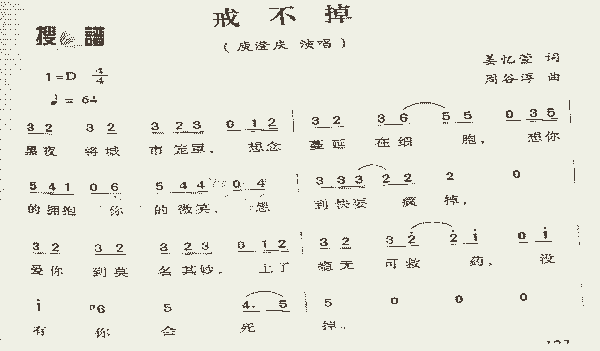 戒不掉
搜 谱
(庾澄庆 演唱)
姜忆萱 词
周谷淳 曲
1=D 4/4
♩= 64
3 2 3 2 3 2 3 0 1 2 | 3 2 3 6 5 5 0 3 5 |
黑夜 将城 市定罪, 想念 蔓延 在细 胞, 想你
5 4 1 0 6 5 4 4 0 4 | 3 3 3 2 2 2 0 |
的拥抱 你 的微笑, 想 到快要 疯 掉,
3 2 3 2 3 2 3 0 1 2 | 3 2 3 2 2 1 0 1 |
爱你 到莫 名其妙, 上了 瘾无 可救 药, 没
1 6 5 4. 5 | 5 0 0 0
有 你 会 死 掉。